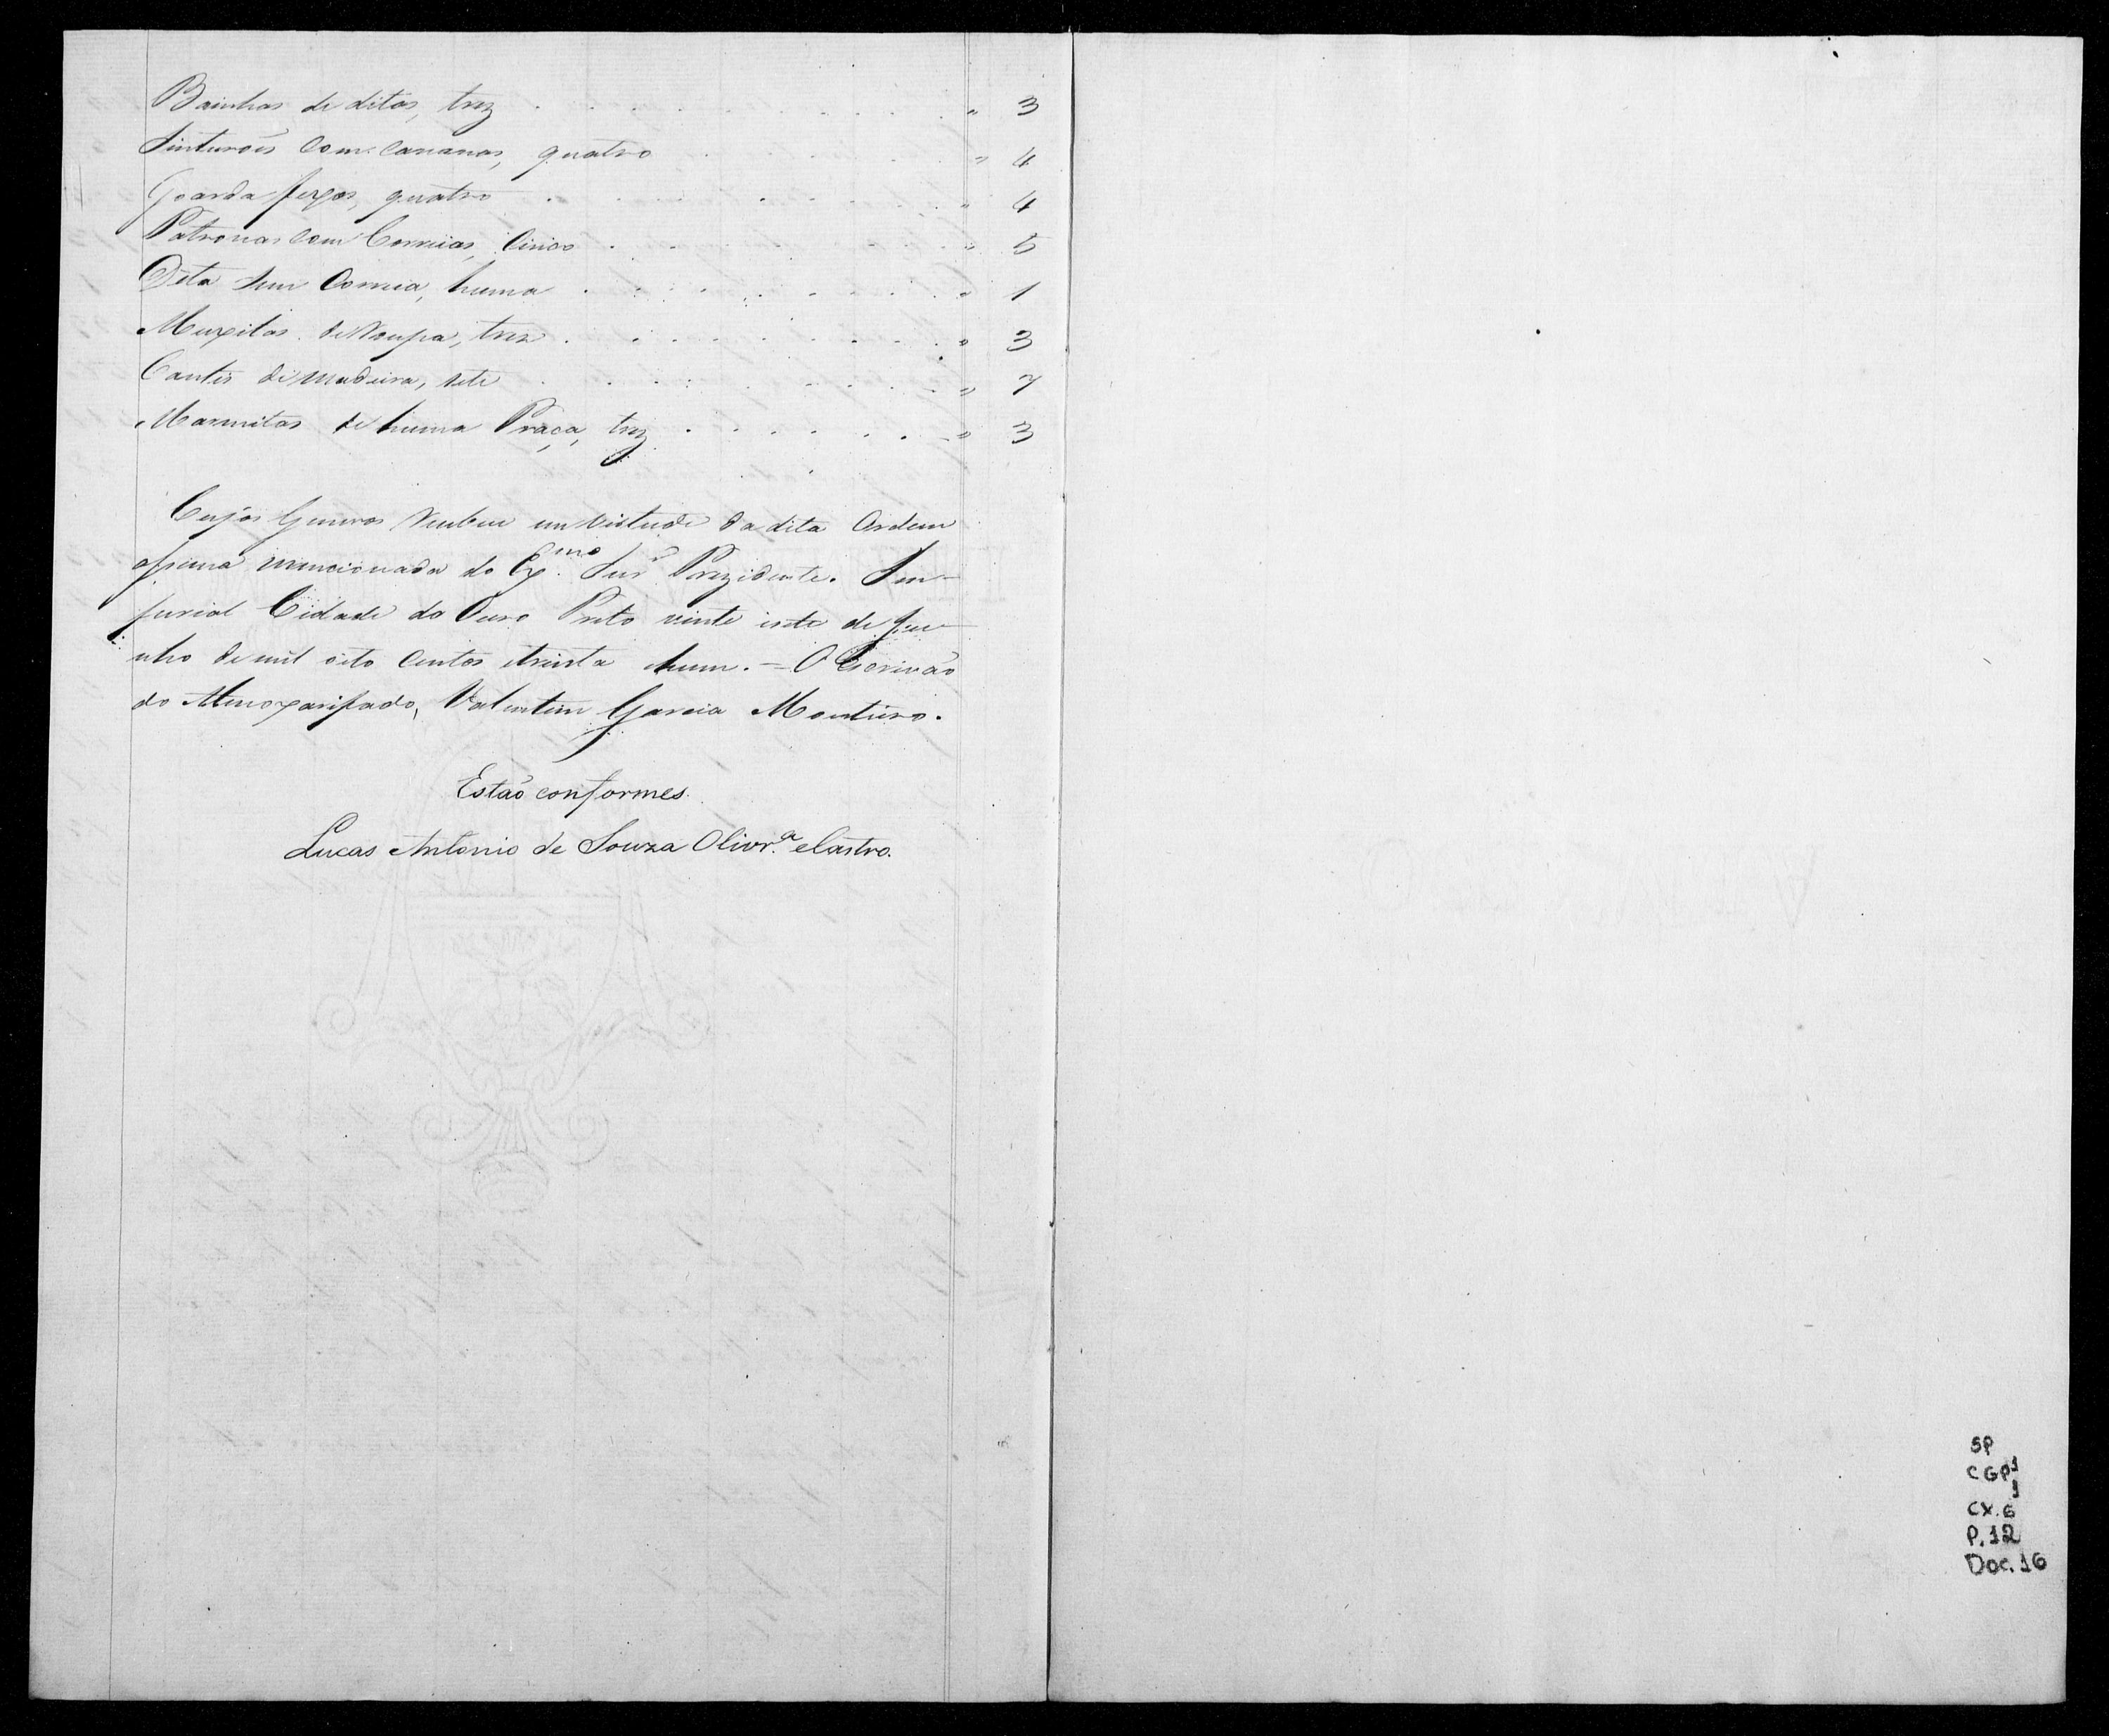 Bainhas de ditas, trez . . . . . . . . . " 3
Sinturões com cananas, quatro . . . . . . " 4
Goarda fexos, quatro . . . . . . . . . " 4
Patronas com Correias, Cinco . . . . . . . " 5
Dita sem Correia, huma . . . . . . . . . " 1
Muxilas de Roupa, trez . . . . . . . . . " 3
Cantis de madeira, sete . . . . . . . . . " 7
Marmitas de huma Praça, trez . . . . . . . " 3
Cujos Generos recebeu em virtude da dita Ordem
assima mencionada do Ex.mo Snr Prezidente. Im-
perial Cidade do Ouro Preto vinte e sete de Ju-
nho de mil oito centos etrinta ehum. = O Escrivão
do Almoxarifado, Valentim Garcia Monteiro.
Estaõ conformes.
Lucas Antonio de Souza Olivr.ª eCastro.
SP
CGP1
1
CX.6
P.12
Doc.16